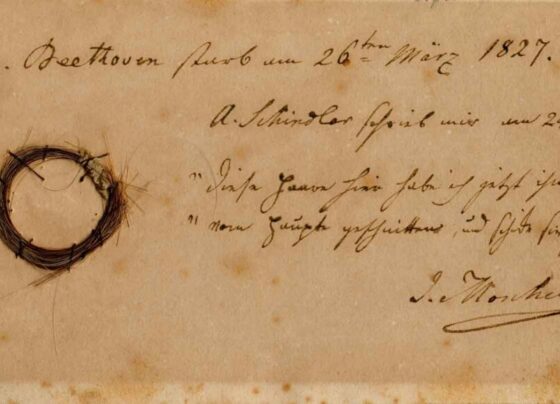 . Beethoven starb am 26ten März 1827.
A. Schindler schrieb mir am 2
"diese Haare hier habe ich jetzt ih
"vom Haupte geschnitten, und schicke sie
I. Mosche